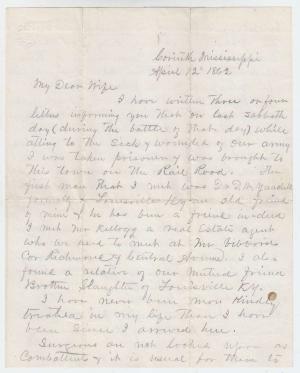 Corinth Mississippi
April 12th 1862
My Dear Wife
I have written three or four
letters informing you that on last Sabbath
day (during the battle of that day) while
atting to the Sick & wounded of our army
I was taken prisoner & was brought to
this town on the Rail Road. The
first man that I met was Dr D. W. Yandell
formerly of Louisville Ky an old friend
of mine & he has been a friend indeed
I met Mr Kellogg a real Estate agent
who we used to meet at Mr Gibbons
Cor Richmond & Central Avenue. I also
found a relative of our Mutual friend
Brother Slaughter of Louisville Ky.
I have never been more Kindly
treated in my life than I have
been since I arrived here.
Surgeons are not looked upon as
Combattents & it is usual for them to